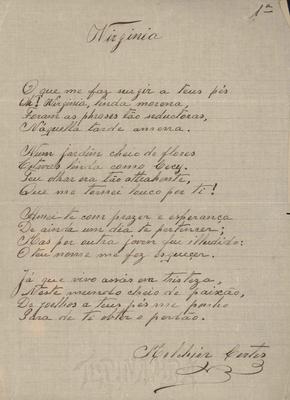 1ª
Virginia
O que me faz surgir a teus pés
Virginia, linda morena,
Foram as phrases tão seductoras,
Naquella tarde amena.
Num jardim cheio de flores
Estavas linda como Cecy;
Teu olhar era tão attrahente,
Que me tornei louco por ti!
Amei-te com prazer e esperança
De ainda um dia te pertencer;
Mas por outra joven que illudido
O teu nome me fez esquecer.
Já que vivo assás em tristeza,
Neste mundo cheio de paixão,
De joelhos a teus pés me ponho
Para de te obter o perdão.
Melchior Cortes